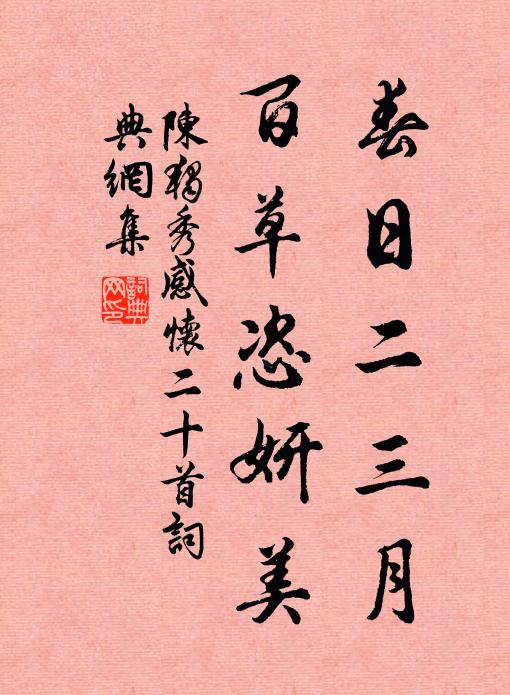 春日二三月
百草恣妍美
陳獨秀感懷二十首詞
典網集
詞典
网印